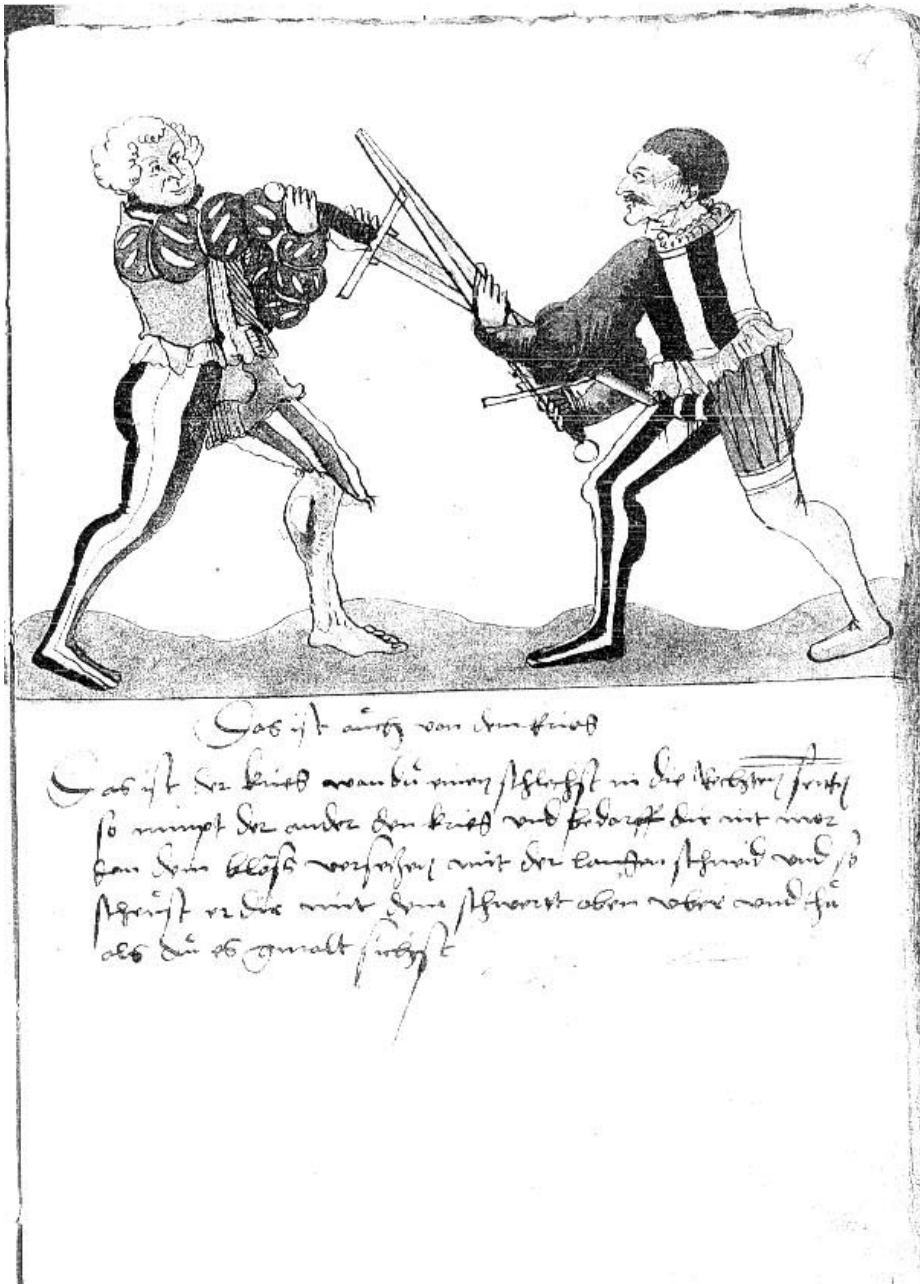 Das ist aůch von dem krieg
Das ist der krieg wan dů einen schlechst in die Rechten seytten
so nimpt der ander den krieg vnd bedarff die nit mer
dan dem blöss versetzen mit der langen schneid vnd so
scheüst er dir mit dem schwertt oben vber vnd thů
als dů es gmalt sichst